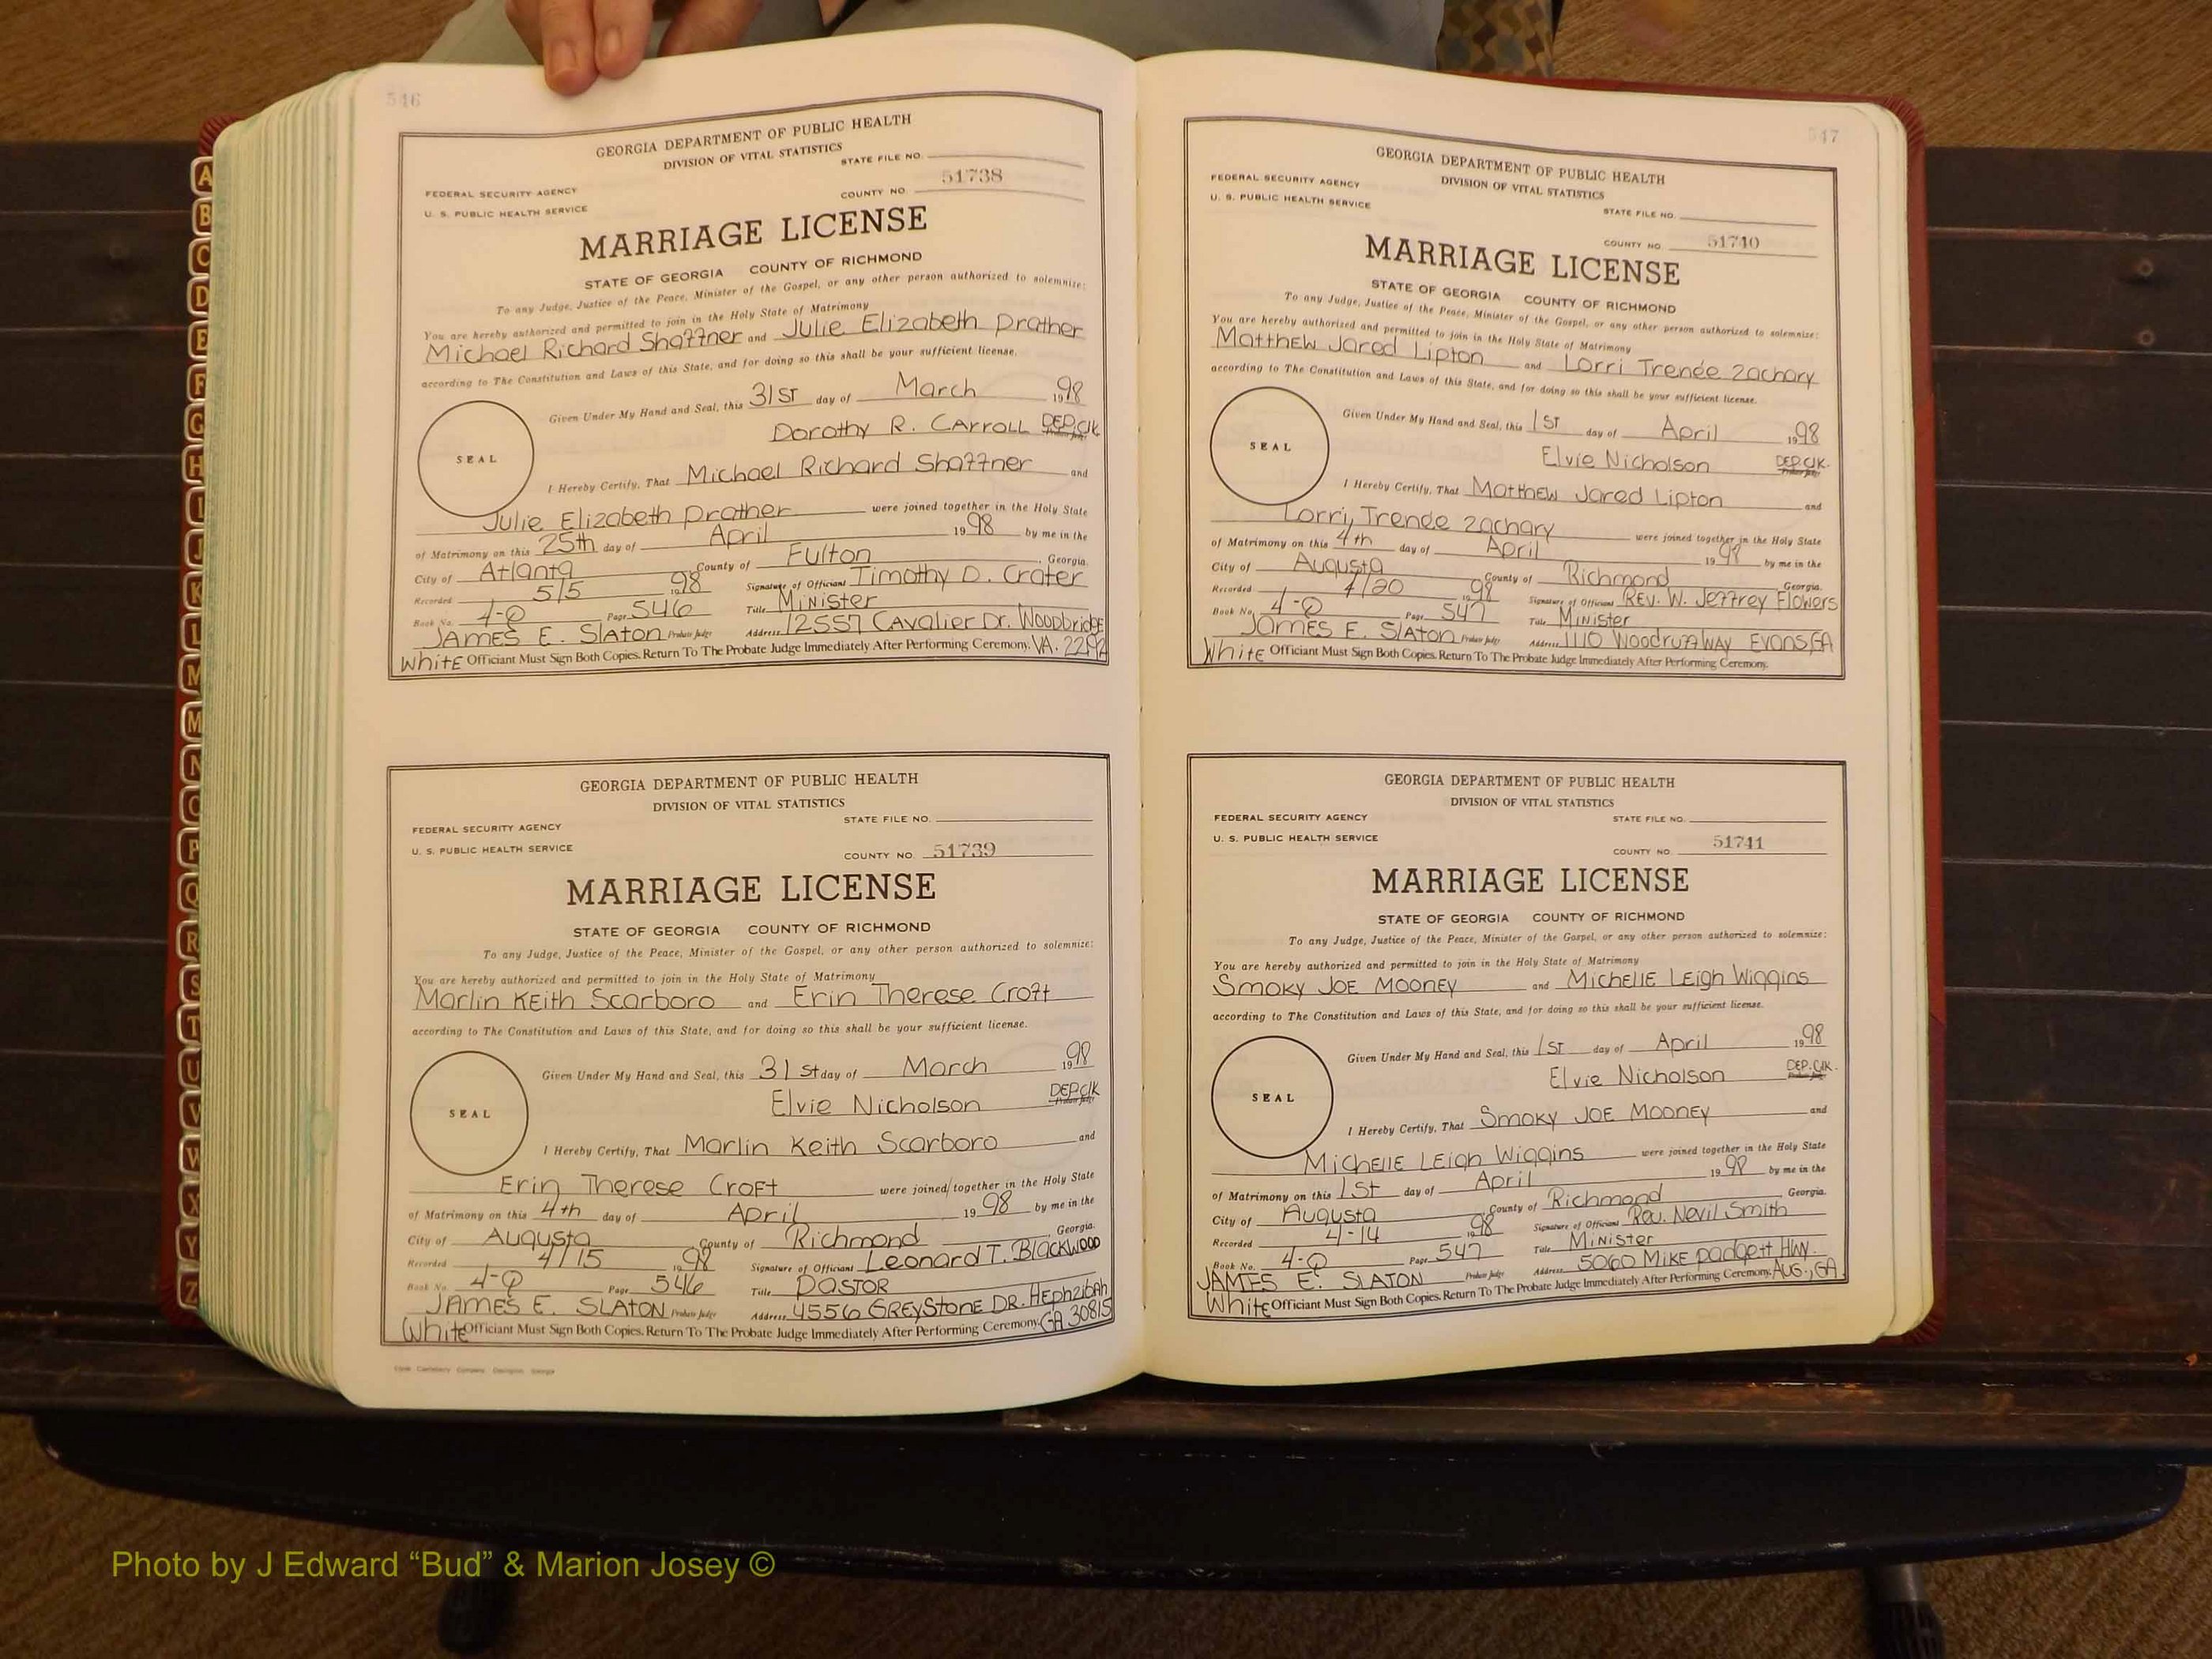 546
GEORGIA DEPARTMENT OF PUBLIC HEALTH
DIVISION OF VITAL STATISTICS
STATE FILE NO.
FEDERAL SECURITY AGENCY
U. S. PUBLIC HEALTH SERVICE
COUNTY NO. 51738
MARRIAGE LICENSE
STATE OF GEORGIA COUNTY OF RICHMOND
To any Judge, Justice of the Peace, Minister of the Gospel, or any other person authorized to solemnize:
You are hereby authorized and permitted to join in the Holy State of Matrimony
Michael Richard Shaffner and Julie Elizabeth Prather
according to The Constitution and Laws of this State, and for doing so this shall be your sufficient license.
Given Under My Hand and Seal, this 31ST day of March 1998
Dorothy R. Carroll DEP. Clk
Probate Judge
SEAL
I Hereby Certify, That Michael Richard Shaffner and
Julie Elizabeth Prather were joined together in the Holy State
of Matrimony on this 25th day of April 1998 by me in the
City of Atlanta County of Fulton Georgia.
Recorded 5/5 1998 Signature of Officiant Timothy D. Crater
Book No. 4-Q Page 546 Title Minister
JAMES E. SLATON Probate Judge Address 12557 Cavalier Dr. Woodbridge
White Officiant Must Sign Both Copies. Return To The Probate Judge Immediately After Performing Ceremony. VA. 22192
GEORGIA DEPARTMENT OF PUBLIC HEALTH
DIVISION OF VITAL STATISTICS
STATE FILE NO.
FEDERAL SECURITY AGENCY
U. S. PUBLIC HEALTH SERVICE
COUNTY NO. 51739
MARRIAGE LICENSE
STATE OF GEORGIA COUNTY OF RICHMOND
To any Judge, Justice of the Peace, Minister of the Gospel, or any other person authorized to solemnize:
You are hereby authorized and permitted to join in the Holy State of Matrimony
Marlin Keith Scarboro and Erin Therese Croft
according to The Constitution and Laws of this State, and for doing so this shall be your sufficient license.
Given Under My Hand and Seal, this 31st day of March 1998
Elvie Nicholson DEP. Clk
Probate Judge
SEAL
I Hereby Certify, That Marlin Keith Scarboro and
Erin Therese Croft were joined together in the Holy State
of Matrimony on this 4th day of April 1998 by me in the
City of Augusta County of Richmond Georgia.
Recorded 4/15 1998 Signature of Officiant Leonard T. Blackwood
Book No. 4-Q Page 546 Title Pastor
JAMES E. SLATON Probate Judge Address 4556 GREYSTONE DR. Hephzibah
White Officiant Must Sign Both Copies. Return To The Probate Judge Immediately After Performing Ceremony. GA 30815
547
GEORGIA DEPARTMENT OF PUBLIC HEALTH
DIVISION OF VITAL STATISTICS
FEDERAL SECURITY AGENCY
U. S. PUBLIC HEALTH SERVICE
STATE FILE NO.
COUNTY NO. 51740
MARRIAGE LICENSE
STATE OF GEORGIA COUNTY OF RICHMOND
To any Judge, Justice of the Peace, Minister of the Gospel, or any other person authorized to solemnize:
You are hereby authorized and permitted to join in the Holy State of Matrimony
Matthew Jared Lipton and Lorri Trenée Zachary
according to The Constitution and Laws of this State, and for doing so this shall be your sufficient license.
Given Under My Hand and Seal, this 1ST day of April 1998
Elvie Nicholson DEP. Clk.
Probate Judge
SEAL
I Hereby Certify, That Matthew Jared Lipton and
Lorri Trenée Zachary were joined together in the Holy State
of Matrimony on this 4th day of April 1998 by me in the
City of Augusta County of Richmond Georgia.
Recorded 4/20 1998 Signature of Officiant Rev. W. Jeffrey Flowers
Book No. 4-Q Page 547 Title Minister
JAMES E. SLATON Probate Judge Address 1110 Woodruff Way Evans, GA
White Officiant Must Sign Both Copies. Return To The Probate Judge Immediately After Performing Ceremony.
GEORGIA DEPARTMENT OF PUBLIC HEALTH
DIVISION OF VITAL STATISTICS
FEDERAL SECURITY AGENCY
STATE FILE NO.
U. S. PUBLIC HEALTH SERVICE
COUNTY NO. 51741
MARRIAGE LICENSE
STATE OF GEORGIA COUNTY OF RICHMOND
To any Judge, Justice of the Peace, Minister of the Gospel, or any other person authorized to solemnize:
You are hereby authorized and permitted to join in the Holy State of Matrimony
Smoky Joe Mooney and Michelle Leigh Wiggins
according to The Constitution and Laws of this State, and for doing so this shall be your sufficient license.
Given Under My Hand and Seal, this 1ST day of April 1998
Elvie Nicholson DEP. Clk.
Probate Judge
SEAL
I Hereby Certify, That Smoky Joe Mooney and
Michelle Leigh Wiggins were joined together in the Holy State
of Matrimony on this 1st day of April 1998 by me in the
City of Augusta County of Richmond Georgia.
Recorded 4-14 1998 Signature of Officiant Rev. Nevil Smith
Book No. 4-Q Page 547 Title Minister
JAMES E. SLATON Probate Judge Address 5060 Mike Padgett Hwy.
White Officiant Must Sign Both Copies. Return To The Probate Judge Immediately After Performing Ceremony. AUG., GA
A
B
C
D
E
F
G
H
I
J
K
L
M
M
N
O
P
Q
R
S
T
U
V
W
X
Y
Z
Photo by J Edward “Bud” & Marion Josey ©